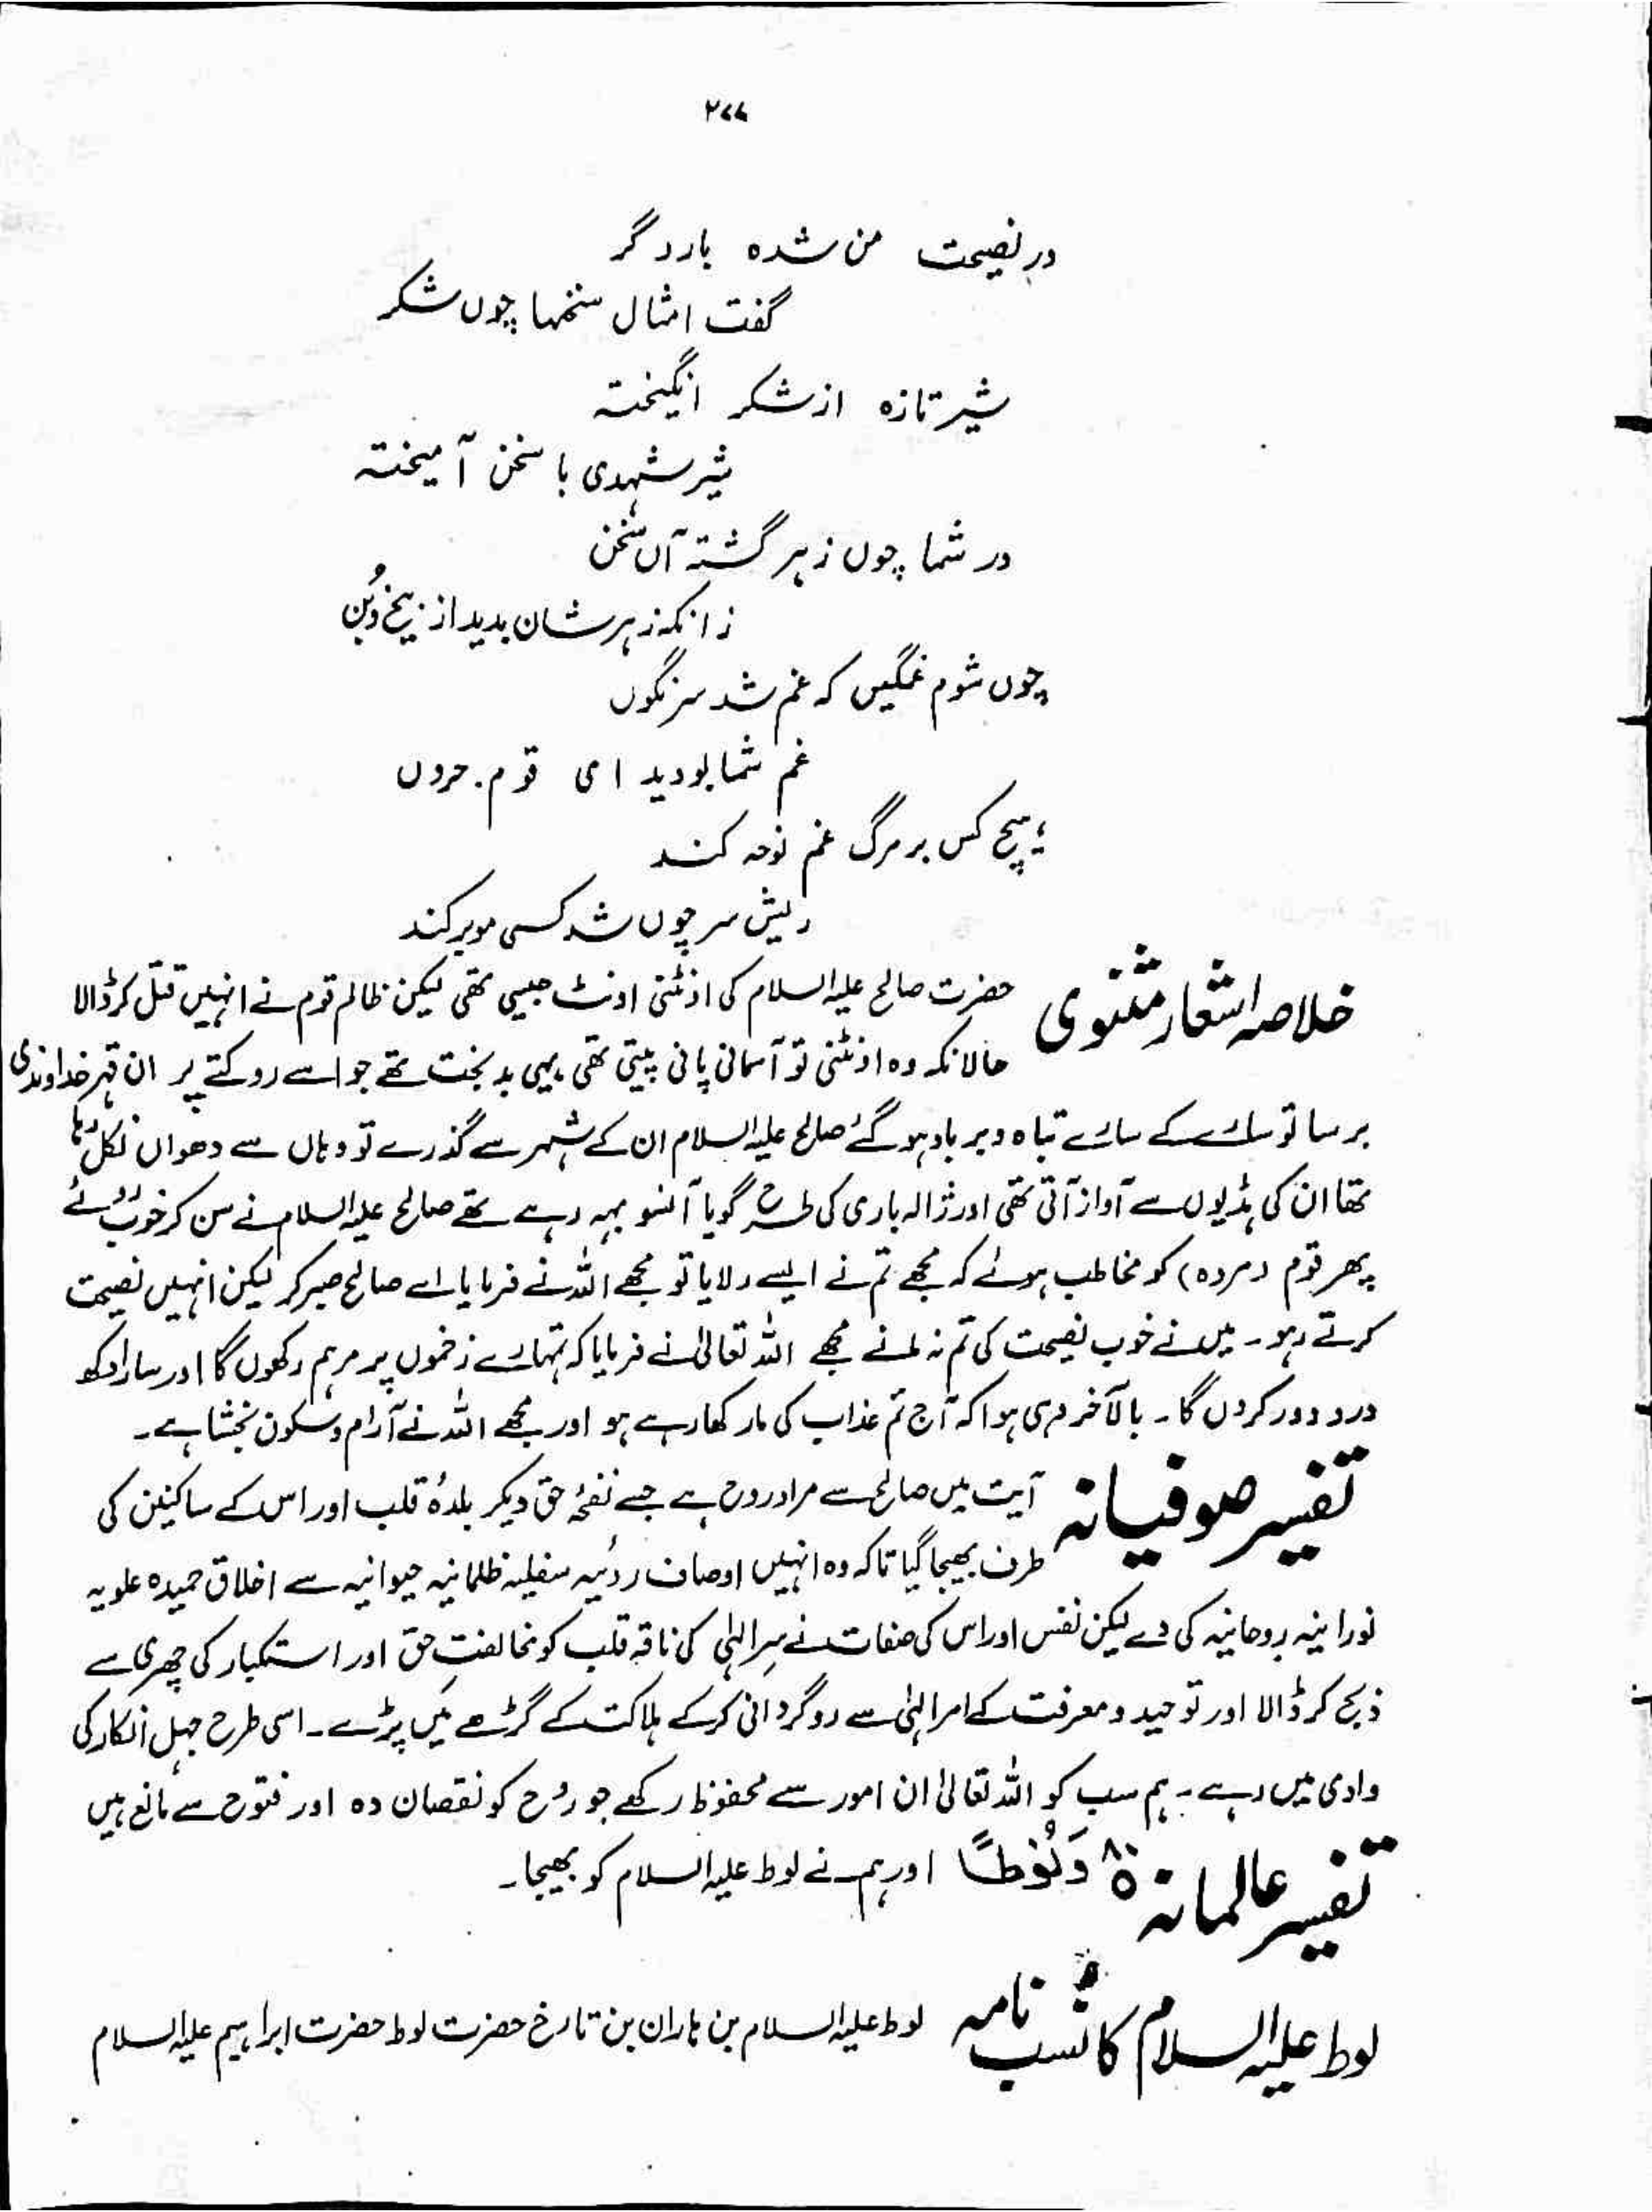 ۲۷۷
در نصیحت من شدہ بارد گر
گفت امثال سخنہا چوں شکر
شیر تازہ از شکر انگیختہ
شیر شہدی با سخن آمیختہ
در شما چوں زہر گشتہ آں سخن
زانکہ زہر شان بدید از بیخ و بُن
چوں شوم غمگیں کہ غم شد سرنگوں
غم شما بودید ای قوم حروں
ہیچ کس بر مرگ غم نوحہ کند
ریش سر چوں شد کسی مو برکند
خلاصہ اشعار مثنوی حضرت صالح علیہ السلام کی اونٹنی اونٹ جیسی تھی لیکن ظالم قوم نے انہیں قتل کر ڈالا
حالانکہ وہ اونٹنی تو آسمانی پانی پیتی تھی یہی بدبخت تھے جو اسے روکتے پر ان قہر خداوندی
برسا تو سارے کے سارے تباہ و برباد ہو گئے صالح علیہ السلام ان کے شہر سے گذرے تو وہاں سے دھواں نکل رہا
تھا ان کی ہڈیوں سے آواز آتی تھی اور ژالہ باری کی طرح گویا آنسو بہہ رہے تھے صالح علیہ السلام نے سن کر خوب روئے
پھر قوم (مردہ) کو مخاطب ہوئے کہ مجھے تم نے ایسے رلایا تو مجھے اللہ نے فرمایا اے صالح صبر کر لیکن انہیں نصیحت
کرتے رہو۔ میں نے خوب نصیحت کی تم نہ مانے مجھے اللہ تعالیٰ نے فرمایا کہ تمہارے زخموں پر مرہم رکھوں گا اور سارا دکھ
درد دور کردں گا۔ بالآخر وہی ہوا کہ آج تم عذاب کی مار کھا رہے ہو اور مجھے اللہ نے آرام و سکون بخشا ہے۔
تفسیر صوفیانہ آیت میں صالح سے مراد روح ہے جسے نفخۂ حق دیکر بلدۂ قلب اور اس کے ساکنین کی
طرف بھیجا گیا تاکہ وہ انہیں اوصاف ردئیہ سفلیہ ظلمانیہ حیوانیہ سے اخلاق حمیدہ علویہ
نورانیہ روحانیہ کی دے لیکن نفس اور اس کی صفات نے سِر الہٰی کی ناقہ قلب کو مخالفتِ حق اور استکبار کی چھری سے
ذبح کر ڈالا اور توحید و معرفت کے امر الہٰی سے روگردانی کرکے ہلاکت کے گڑھے میں پڑے۔ اسی طرح جہل انکار کی
وادی میں رہے۔ ہم سب کو اللہ تعالیٰ ان امور سے محفوظ رکھے جو رُوح کو نقصان دہ اور فتوح سے مانع ہیں
تفسیر عالمانہ ۸۰ وَلُوْطًا اور ہم نے لوط علیہ السلام کو بھیجا۔
لوط علیہ السلام کا نسب نامہ لوط علیہ السلام بن ہاران بن تارخ حضرت لوط حضرت ابراہیم علیہ السلام